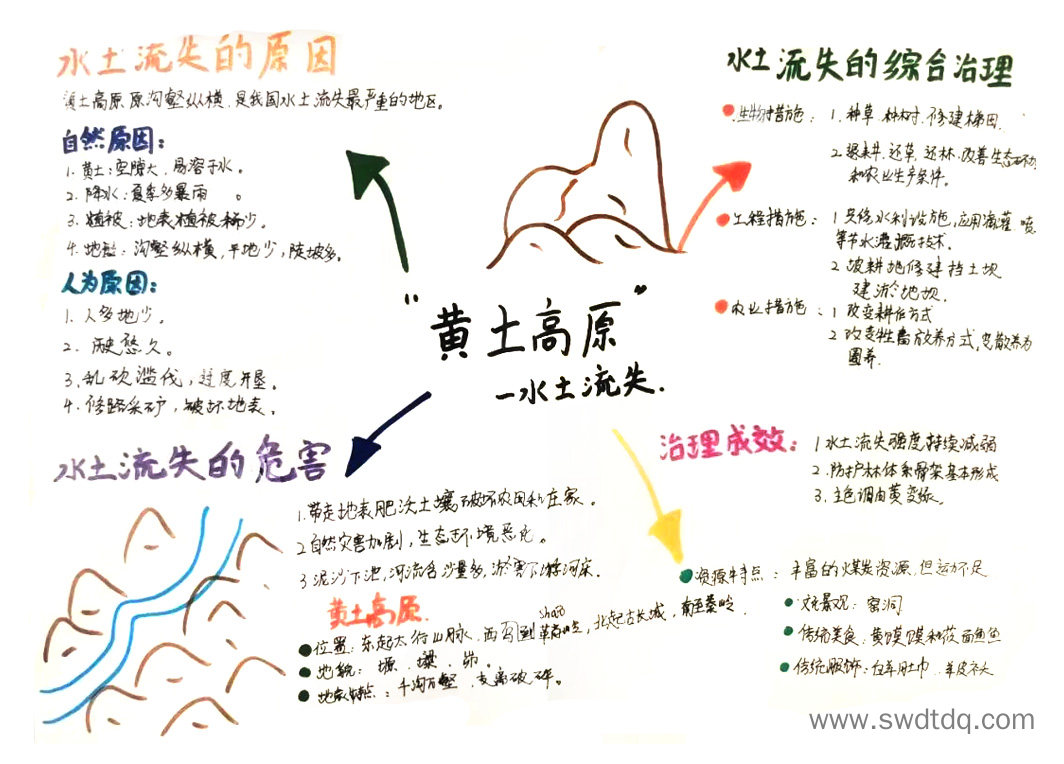 水土流失的原因
黄土高原 原沟壑纵横,是我国水土流失最严重的地区。
自然原因:
1. 黄土:空隙大,易溶于水。
2. 降水:夏季多暴雨。
3. 植被:地表植被稀少。
4. 地貌:沟壑纵横,平地少,陡坡多。
人为原因:
1. 人多地少。
2. 历史悠久。
3. 乱砍滥伐,过度开垦。
4. 修路采矿,破坏地表。
水土流失的危害
1. 带走地表肥沃土壤 破坏农田和庄家。
2 自然灾害加剧,生态环境恶化。
3 泥沙下泄,河流含沙量多,淤害下游河床。
"黄土高原"
—水土流失.
水土流失的综合治理
生物措施: 1. 种草、种树、修建梯田.
2 退耕、还草、还林、改善生态环
和农业生产条件。
工程措施: 1 兴修水利设施,应用滴灌 喷
等节水灌溉技术.
2 坡耕地修建挡土坝
建淤地坝.
农业措施: 1 改变耕作方式
2 改变牲畜放养方式,变散养为
圈养.
治理成效: 1 水土流失强度持续减弱
2. 防护林体系骨架基本形成
3. 主色调由黄变绿.
黄土高原
shao
位置: 东起太行山脉,西到 ,北起古长城,南至秦岭.
地貌: 塬、墚、峁。
地表特点: 千沟万壑、支离破碎。
资源特点: 丰富的煤炭资源,但 不足
文化景观: 窑洞
传统美食: 黄馍馍和莜面鱼鱼
传统服饰: 白羊肚巾、羊皮袄
www.swdtdq.com